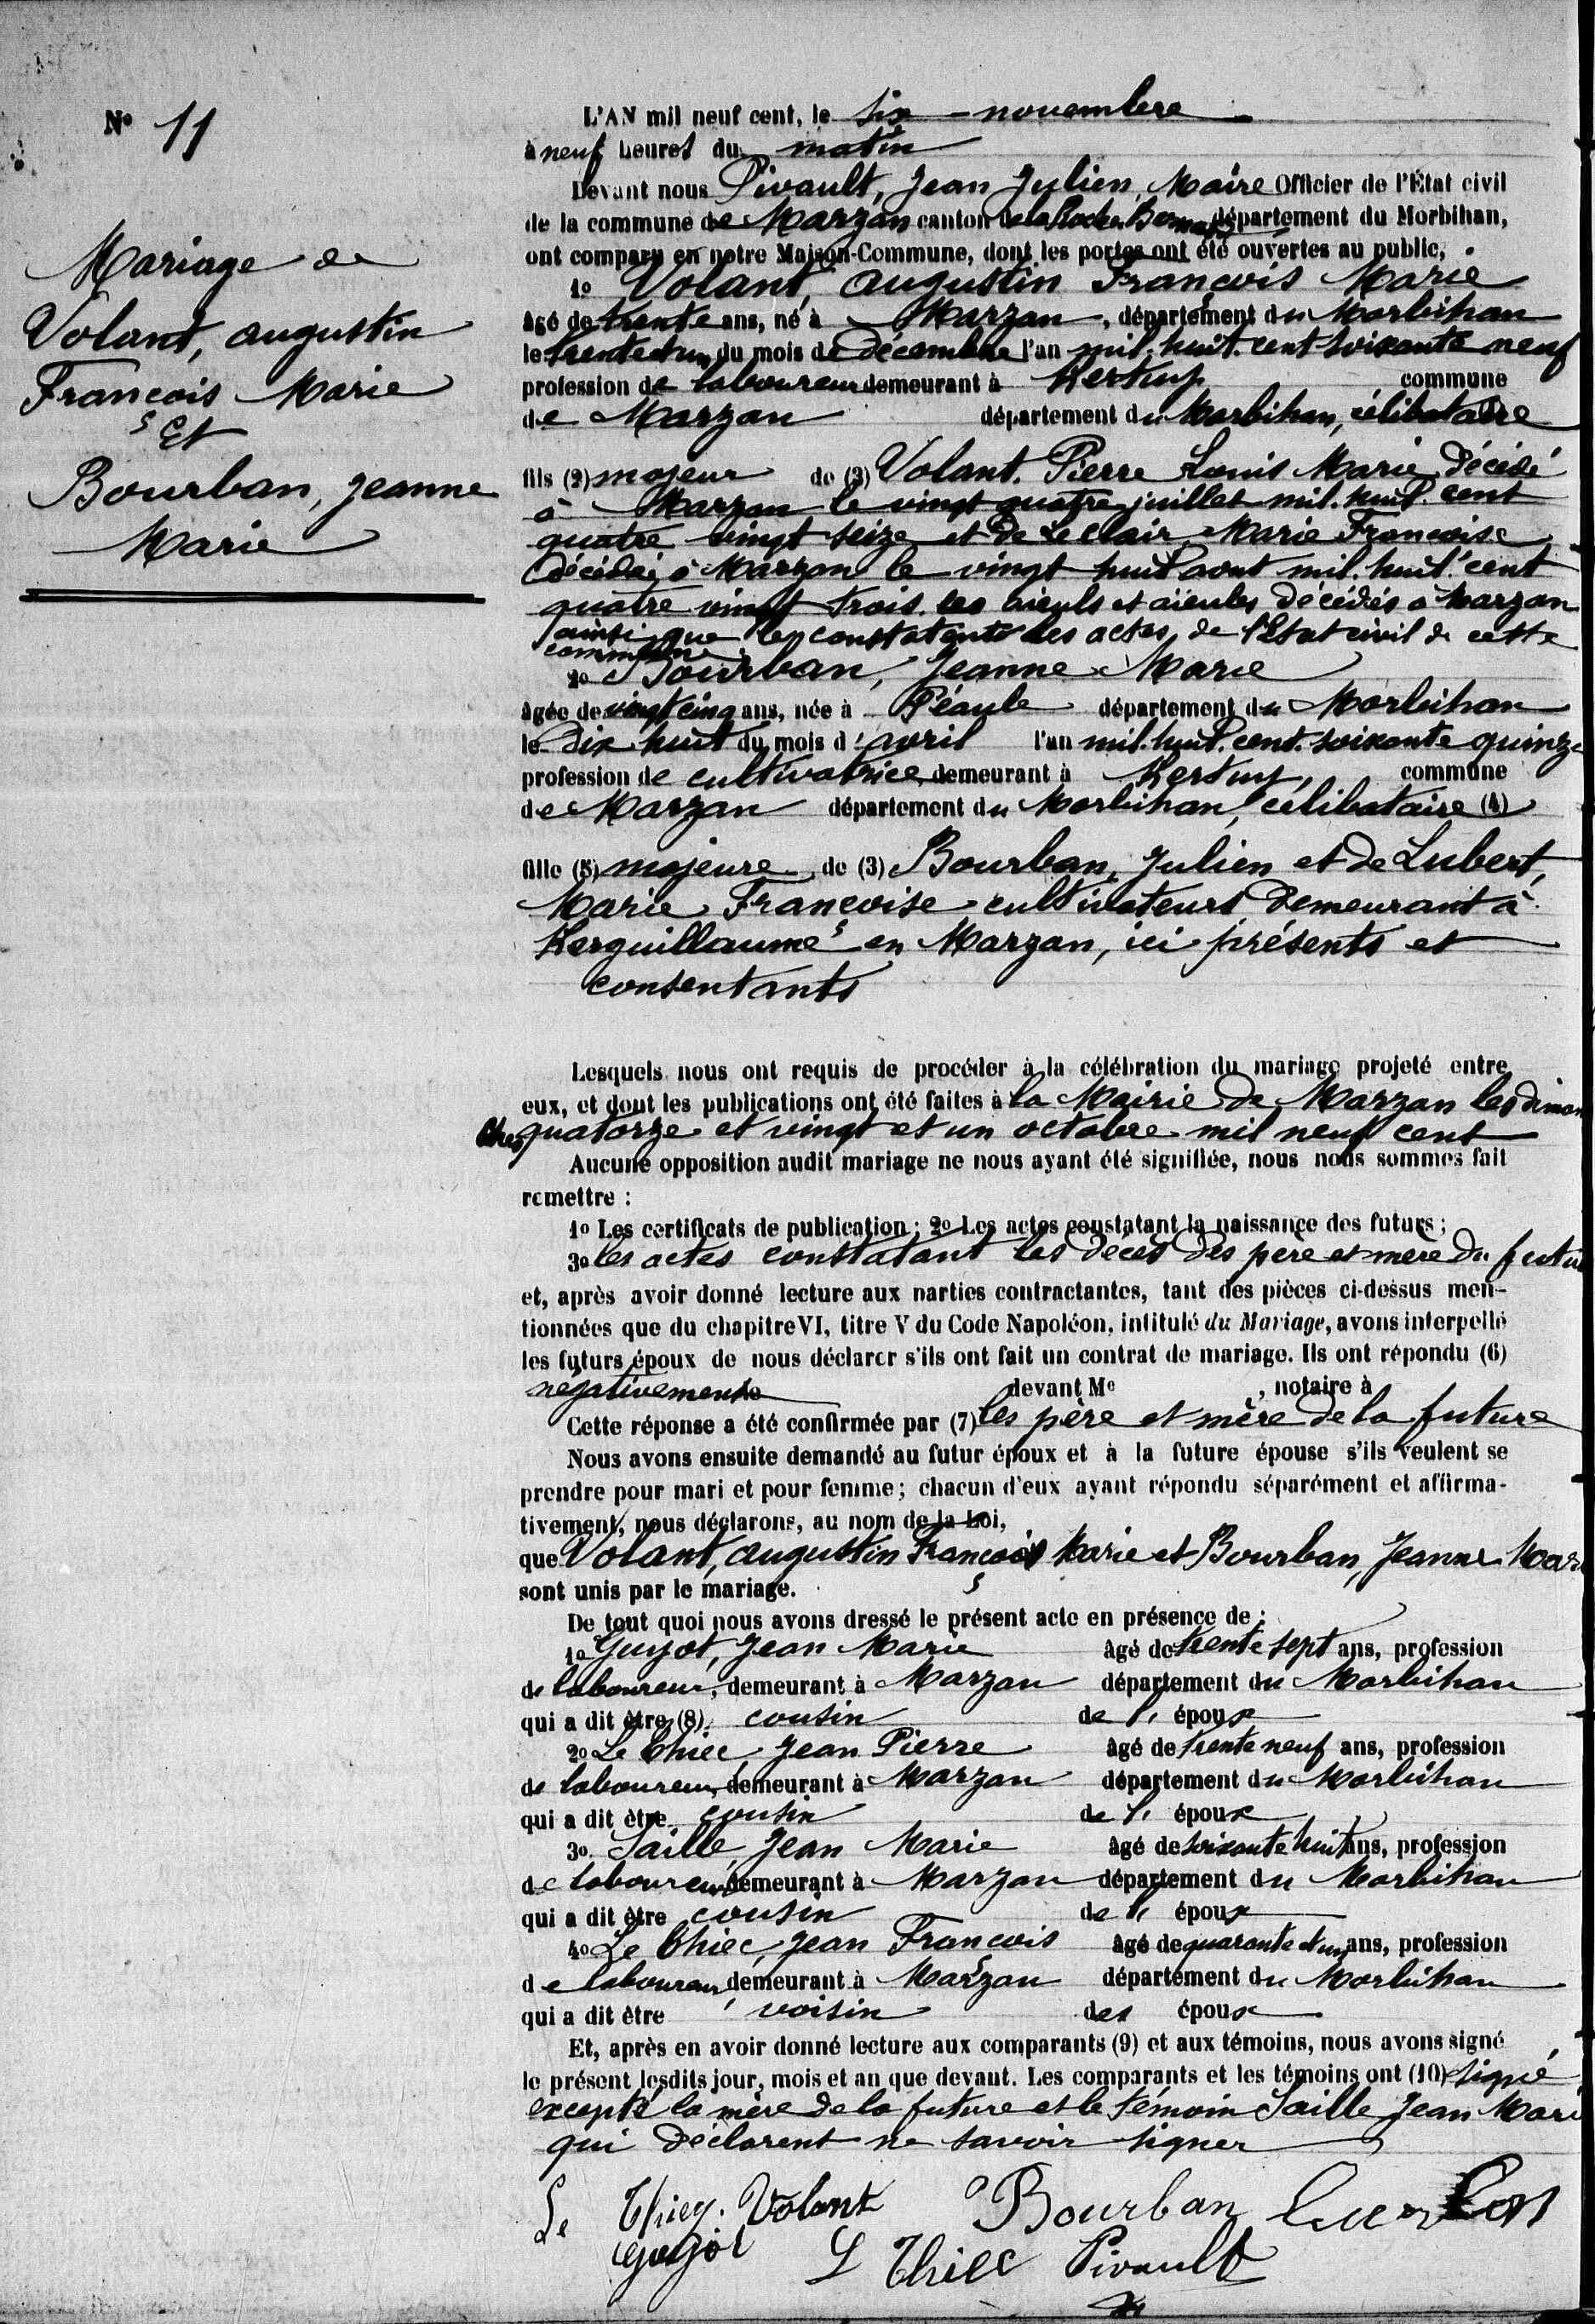 N° 11
Mariage de
Volant, augustin
François Marie
et
Bourban, Jeanne
Marie
L'AN mil neuf cent, le six novembre
à neuf heures du matin
Devant nous Pivault, Jean Julien, Maire Officier de l'État civil
de la commune de Marzan canton de la Roche Bernard département du Morbihan,
ont comparu en notre Maison-Commune, dont les portes ont été ouvertes au public,
1° Volant, augustin François Marie
âgé de trente ans, né à Marzan, département du Morbihan
le trente et un du mois de décembre l'an mil huit cent soixante neuf
profession de laboureur demeurant à commune
de Marzan département du Morbihan, célibataire
fils (2) majeur de (3) Volant, Pierre Louis Marie, décédé
à Marzan le vingt quatre juillet mil huit cent
quatre vingt seize et de Leclair Marie Françoise
décédée à Marzan le vingt huit aout mil huit cent
quatre vingt trois. les aïeuls et aïeules décédés à Marzan
ainsi que le constatent les actes de l'Etat civil de cette
commune
2° Bourban, Jeanne Marie
âgée de vingt cinq ans, née à Péaule département du Morbihan
le dix huit du mois d'avril l'an mil huit cent soixante quinze
profession de cultivatrice demeurant à commune
de Marzan département du Morbihan, célibataire (4)
fille (5) majeure de (3) Bourban, Julien et de Lubert,
Marie Françoise cultivateurs demeurant à
Kerguillaume en Marzan, ici présents et
consentants
Lesquels nous ont requis de procéder à la célébration du mariage projeté entre
eux, et dont les publications ont été faites à la Mairie de Marzan les diman
ches quatorze et vingt et un octobre mil neuf cent
Aucune opposition audit mariage ne nous ayant été signifiée, nous nous sommes fait
remettre :
1° Les certificats de publication ; 2° Les actes constatant la naissance des futurs ;
3° les actes constatant les décès des père et mère du futur
et, après avoir donné lecture aux parties contractantes, tant des pièces ci-dessus men-
tionnées que du chapitre VI, titre V du Code Napoléon, intitulé du Mariage, avons interpellé
les futurs époux de nous déclarer s'ils ont fait un contrat de mariage. Ils ont répondu (6)
négativement devant Me , notaire à
Cette réponse a été confirmée par (7) les père et mère de la future
Nous avons ensuite demandé au futur époux et à la future épouse s'ils veulent se
prendre pour mari et pour femme ; chacun d'eux ayant répondu séparément et affirma-
tivement, nous déclarons, au nom de la Loi,
que Volant, augustin François Marie et Bourban, Jeanne Mar
sont unis par le mariage.
De tout quoi nous avons dressé le présent acte en présence de :
1° Guyot, Jean Marie âgé de trente sept ans, profession
de laboureur, demeurant à Marzan département du Morbihan
qui a dit être (8) cousin de l' époux
2° Le Thiec Jean Pierre âgé de trente neuf ans, profession
de laboureur demeurant à Marzan département du Morbihan
qui a dit être cousin de l' époux
3° Saille, Jean Marie âgé de soixante huit ans, profession
de laboureur demeurant à Marzan département du Morbihan
qui a dit être cousin de l' époux
4° Le Thiec, Jean François âgé de quarante et un ans, profession
de laboureur demeurant à Marzan département du Morbihan
qui a dit être voisin des époux
Et, après en avoir donné lecture aux comparants (9) et aux témoins, nous avons signé
le présent lesdits jour, mois et an que devant. Les comparants et les témoins ont (10) signé
excepté la mère de la future et le témoin Saille Jean Mari
qui déclarent ne savoir signer
Le Thiec Volant Bourban
Guyot L Thiec Pivault